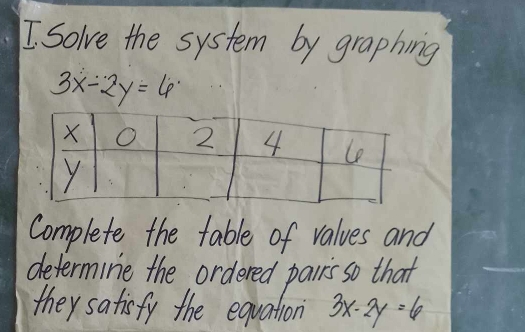 I. Solve the system by graphing
3x-2y = 6
x 0 2 4 6
y
Complete the table of values and
determine the ordered pairs so that
they satisfy the equation 3x-2y = 6